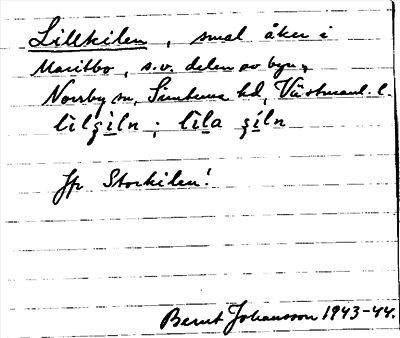 Lillkilen, smal åker i
Maritbo, s.v. delen av byn,
Norrby sn, Simtuna hd, Västmanl. l.
lilşiln ; lila şiln
Jfr Storkilen!
Bernt Johansson 1943-44.